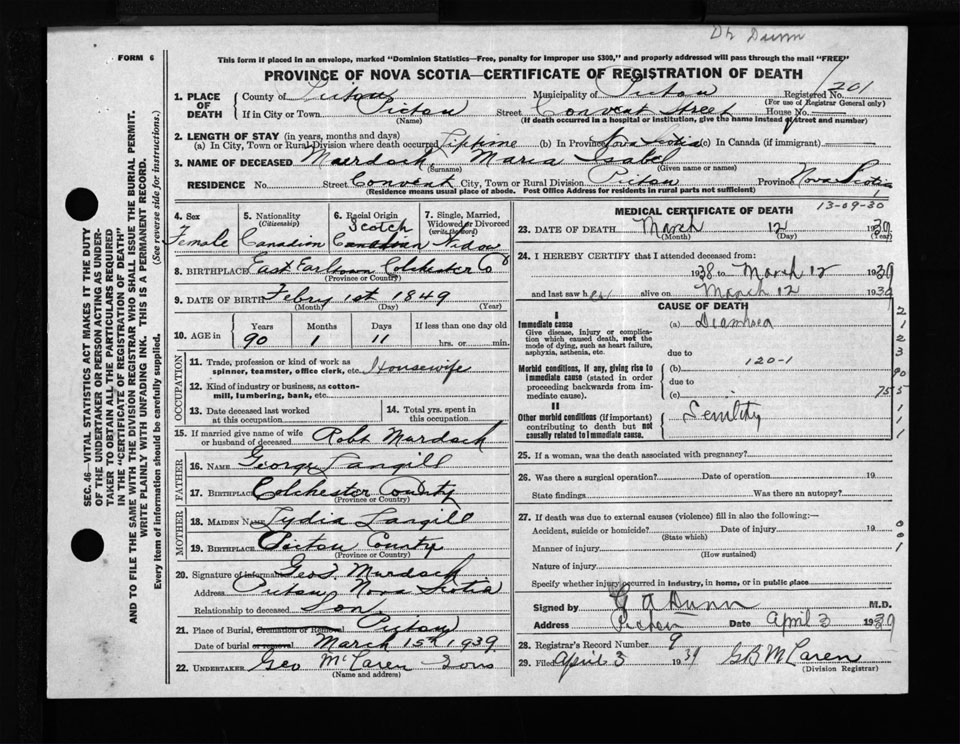 Dr Dunn
FORM 6
This form if placed in an envelope, marked "Dominion Statistics—Free, penalty for improper use $300," and properly addressed will pass through the mail "FREE"
PROVINCE OF NOVA SCOTIA—CERTIFICATE OF REGISTRATION OF DEATH
1. PLACE OF DEATH
County of Pictou Municipality of Pictou Registered No. 201
(For use of Registrar General only)
If in City or Town Pictou Street Convent Street House No.
(Name) (If death occurred in a hospital or institution, give the name instead of street and number)
2. LENGTH OF STAY (in years, months and days)
(a) In City, Town or Rural Division where death occurred Lifetime (b) In Province Nova Scotia (c) In Canada (if immigrant)
3. NAME OF DECEASED Murdoch, Maria Isabel
(Surname) (Given name or names)
RESIDENCE No. Street Convent City, Town or Rural Division Pictou Province Nova Scotia
(Residence means usual place of abode. Post Office Address for residents in rural parts not sufficient)
4. Sex Female
5. Nationality (Citizenship) Canadian
6. Racial Origin Scotch Canadian
7. Single, Married, Widowed or Divorced (write the word) Widow
8. BIRTHPLACE East Earltown Colchester Co
(Province or Country)
9. DATE OF BIRTH Febry 1st 1849
(Month) (Day) (Year)
10. AGE in Years Months Days If less than one day old
90 1 11 hrs. or min.
OCCUPATION
11. Trade, profession or kind of work as spinner, teamster, office clerk, etc. Housewife
12. Kind of industry or business, as cotton-mill, lumbering, bank, etc.
13. Date deceased last worked at this occupation
14. Total yrs. spent in this occupation
15. If married give name of wife or husband of deceased Robt Murdoch
FATHER
16. NAME George Langill
17. BIRTHPLACE Colchester County
(Province or Country)
MOTHER
18. MAIDEN NAME Lydia Langill
19. BIRTHPLACE Pictou County
(Province or Country)
20. Signature of informant Geo. Murdoch
Address Pictou Nova Scotia
Relationship to deceased Son
21. Place of Burial, Cremation or Removal Pictou
Date of burial or removal March 15th 1939
22. UNDERTAKER Geo McLaren Sons
(Name and address)
13-09-30
MEDICAL CERTIFICATE OF DEATH
23. DATE OF DEATH March 12 1939
(Month) (Day) (Year)
24. I HEREBY CERTIFY that I attended deceased from:
1938 to March 12 1939
and last saw her alive on March 12 1939
CAUSE OF DEATH
I
Immediate cause (a) Diarrhoea
Give disease, injury or complication which caused death, not the mode of dying, such as heart failure, asphyxia, asthenia, etc.
due to
Morbid conditions, if any, giving rise to immediate cause (stated in order proceeding backwards from immediate cause).
(b) 120-1
due to
(c)
II
Other morbid conditions (if important) contributing to death but not causally related to immediate cause.
Senility
25. If a woman, was the death associated with pregnancy?
26. Was there a surgical operation? Date of operation 19
State findings Was there an autopsy?
27. If death was due to external causes (violence) fill in also the following:—
Accident, suicide or homicide? Date of injury 19
(State which)
Manner of injury
(How sustained)
Nature of injury
Specify whether injury occurred in industry, in home, or in public place
Signed by G A Dunn M.D.
Address Pictou Date April 3 1939
28. Registrar's Record Number 9
29. Filed April 3 1939 G B McLaren
(Division Registrar)
SEC. 46—VITAL STATISTICS ACT MAKES IT THE DUTY
OF THE UNDERTAKER OR PERSON ACTING AS UNDER-
TAKER TO OBTAIN ALL THE PARTICULARS REQUIRED
IN THE "CERTIFICATE OF REGISTRATION OF DEATH"
AND TO FILE THE SAME WITH THE DIVISION REGISTRAR WHO SHALL ISSUE THE BURIAL PERMIT.
WRITE PLAINLY WITH UNFADING INK. THIS IS A PERMANENT RECORD.
Every item of information should be carefully supplied. (See reverse side for instructions.)